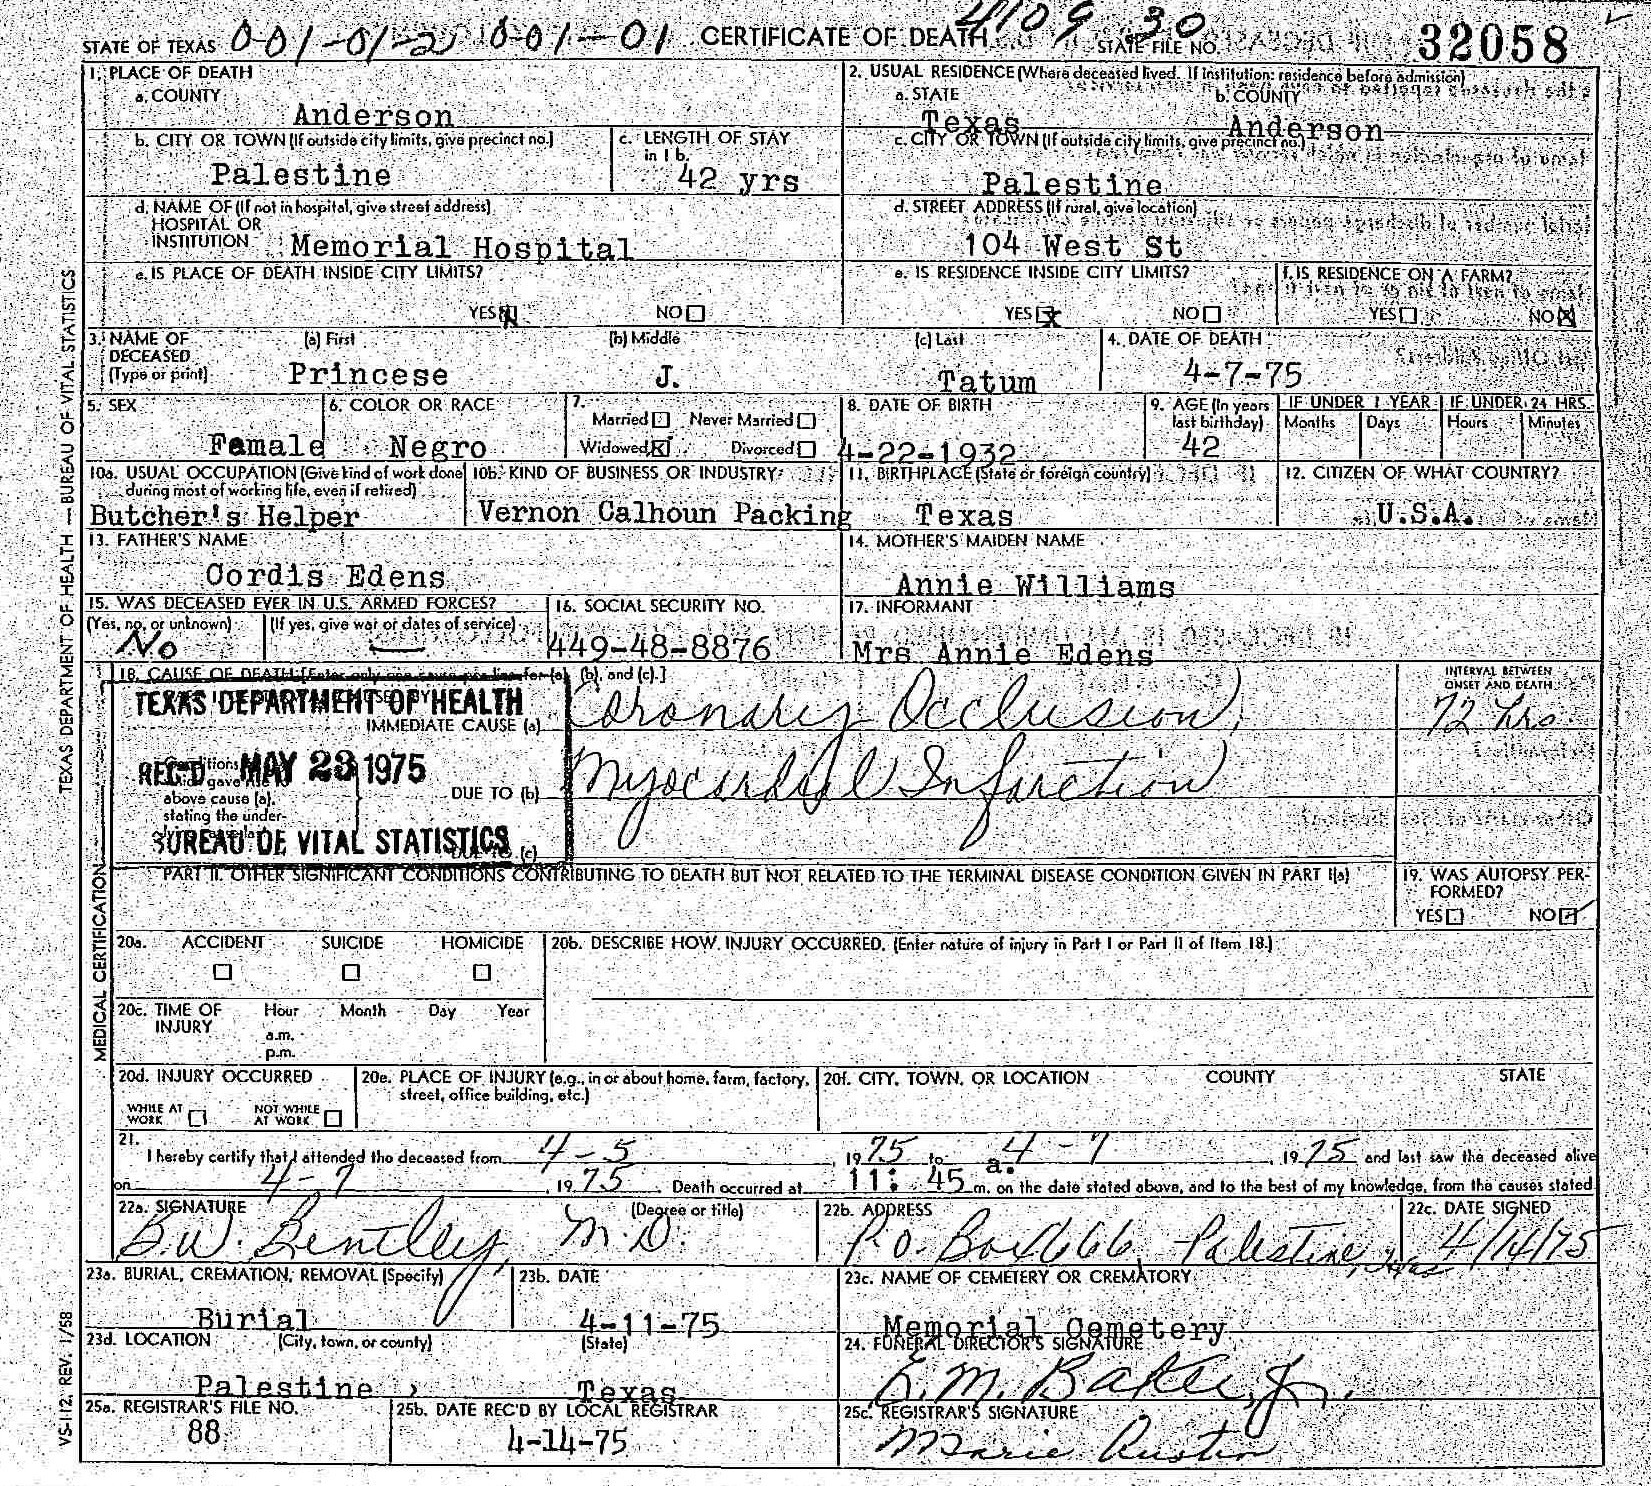 STATE OF TEXAS 001-01-2 001-01 CERTIFICATE OF DEATH 4109 30 STATE FILE NO. 32058
1. PLACE OF DEATH
a. COUNTY
Anderson
2. USUAL RESIDENCE (Where deceased lived. If institution: residence before admission)
a. STATE b. COUNTY
Texas Anderson
b. CITY OR TOWN (If outside city limits, give precinct no.)
Palestine
c. LENGTH OF STAY
in 1 b.
42 yrs
c. CITY OR TOWN (If outside city limits, give precinct no.)
Palestine
d. NAME OF (If not in hospital, give street address)
HOSPITAL OR
INSTITUTION Memorial Hospital
d. STREET ADDRESS (If rural, give location)
104 West St
e. IS PLACE OF DEATH INSIDE CITY LIMITS?
YES NO
e. IS RESIDENCE INSIDE CITY LIMITS?
YES NO
f. IS RESIDENCE ON A FARM?
YES NO
3. NAME OF
DECEASED
(Type or print)
(a) First (b) Middle (c) Last
Princese J. Tatum
4. DATE OF DEATH
4-7-75
5. SEX
Famale
6. COLOR OR RACE
Negro
7.
Married Never Married
Widowed Divorced
8. DATE OF BIRTH
4-22-1932
9. AGE (In years
last birthday)
42
IF UNDER 1 YEAR
Months Days
IF UNDER 24 HRS.
Hours Minutes
10a. USUAL OCCUPATION (Give kind of work done
during most of working life, even if retired)
Butcher's Helper
10b. KIND OF BUSINESS OR INDUSTRY
Vernon Calhoun Packing
11. BIRTHPLACE (State or foreign country)
Texas
12. CITIZEN OF WHAT COUNTRY?
U.S.A.
13. FATHER'S NAME
Cordis Edens
14. MOTHER'S MAIDEN NAME
Annie Williams
15. WAS DECEASED EVER IN U.S. ARMED FORCES?
(Yes, no, or unknown) (If yes, give war or dates of service)
No —
16. SOCIAL SECURITY NO.
449-48-8876
17. INFORMANT
Mrs Annie Edens
18. CAUSE OF DEATH [Enter only one cause per line for (a), (b), and (c).]
TEXAS DEPARTMENT OF HEALTH
IMMEDIATE CAUSE (a) Coronary Occlusion,
INTERVAL BETWEEN
ONSET AND DEATH
72 hrs
REC'D MAY 23 1975
above cause (a),
stating the under-
DUE TO (b) Myocardial Infarction
BUREAU OF VITAL STATISTICS
DUE TO (c)
PART II. OTHER SIGNIFICANT CONDITIONS CONTRIBUTING TO DEATH BUT NOT RELATED TO THE TERMINAL DISEASE CONDITION GIVEN IN PART I(a)
19. WAS AUTOPSY PER-
FORMED?
YES NO
20a. ACCIDENT SUICIDE HOMICIDE
20b. DESCRIBE HOW INJURY OCCURRED. (Enter nature of injury in Part I or Part II of Item 18.)
20c. TIME OF
INJURY
Hour Month Day Year
a.m.
p.m.
20d. INJURY OCCURRED
WHILE AT
WORK
NOT WHILE
AT WORK
20e. PLACE OF INJURY (e.g., in or about home, farm, factory,
street, office building, etc.)
20f. CITY, TOWN, OR LOCATION COUNTY STATE
21.
I hereby certify that I attended the deceased from 4-5, 1975 to 4-7, 1975 and last saw the deceased alive
on 4-7, 1975 Death occurred at 11:45 a.m. on the date stated above, and to the best of my knowledge, from the causes stated
22a. SIGNATURE (Degree or title)
B.W. Bentley, M.D.
22b. ADDRESS
P.O. Box 666 Palestine, Texas
22c. DATE SIGNED
4/14/75
23a. BURIAL, CREMATION, REMOVAL (Specify)
Burial
23b. DATE
4-11-75
23c. NAME OF CEMETERY OR CREMATORY
Memorial Cemetery
23d. LOCATION (City, town, or county) (State)
Palestine, Texas
24. FUNERAL DIRECTOR'S SIGNATURE
E.M. Baker, Jr.
25a. REGISTRAR'S FILE NO.
88
25b. DATE REC'D BY LOCAL REGISTRAR
4-14-75
25c. REGISTRAR'S SIGNATURE
Marie Austin
TEXAS DEPARTMENT OF HEALTH — BUREAU OF VITAL STATISTICS
MEDICAL CERTIFICATION
VS-112, REV. 1/58